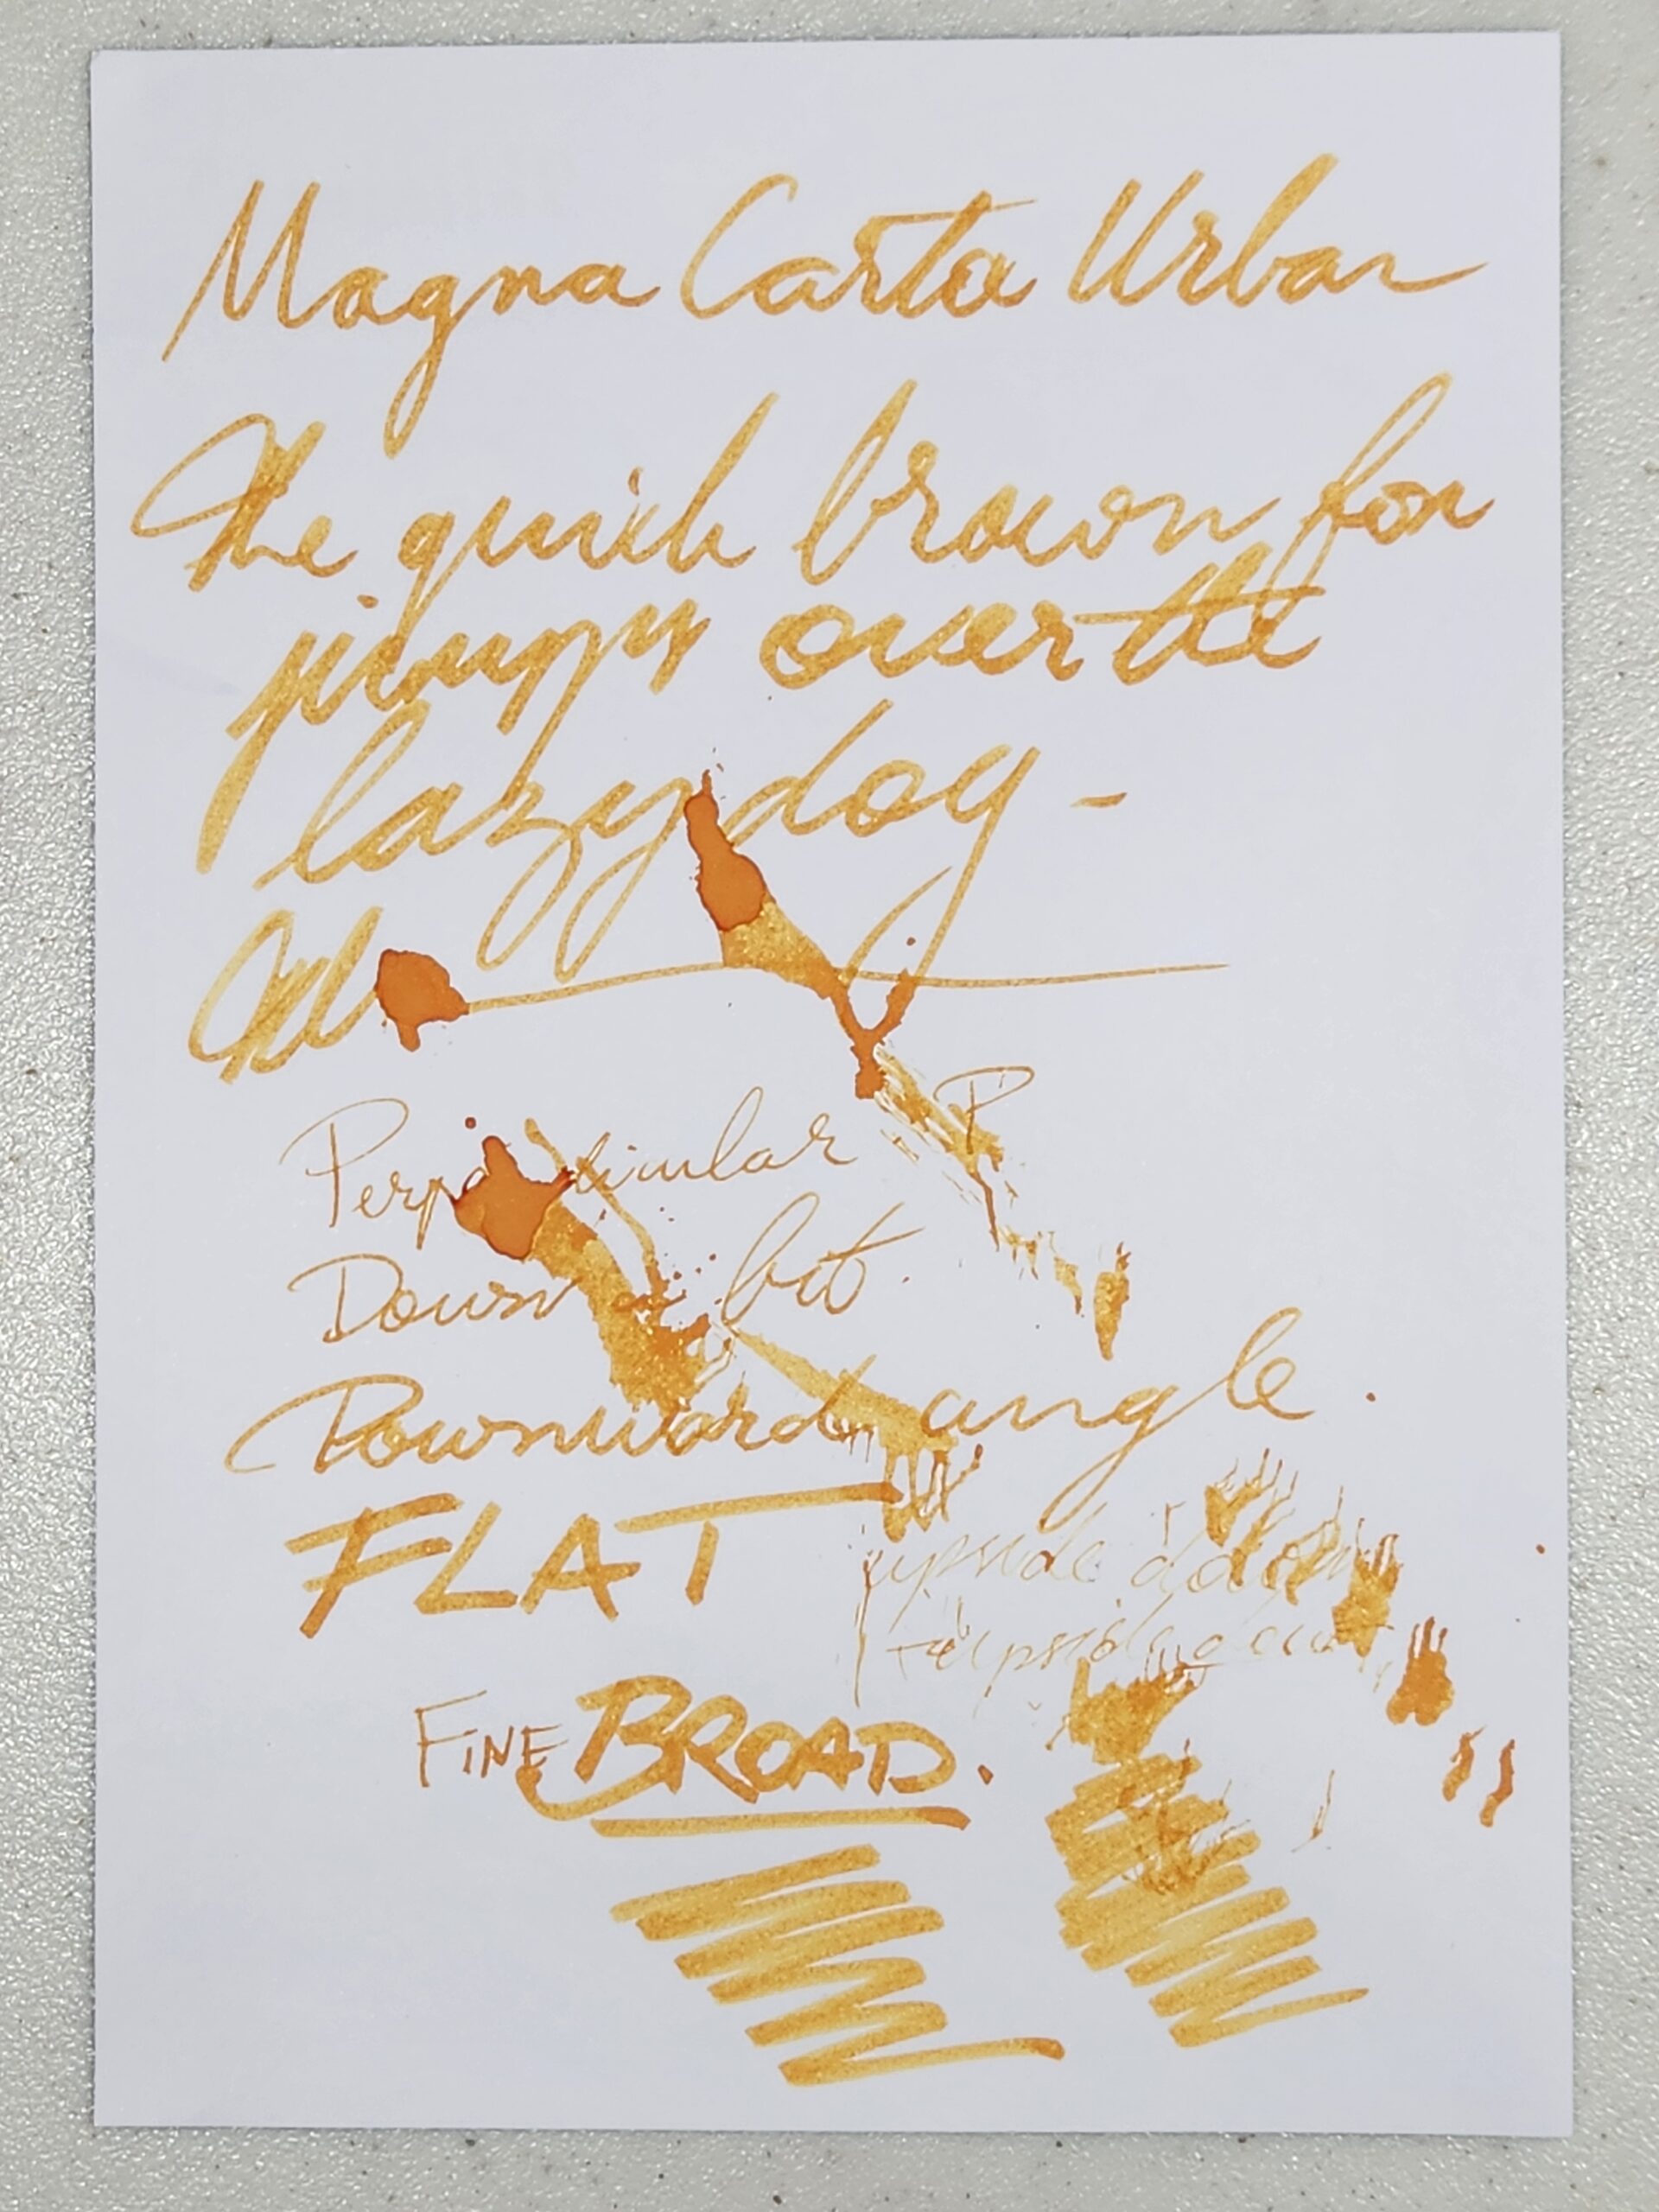 Magna Carta Urban
The quick brown fox
jumps over the
lazy dog -
Perpendicular P
Down a bit.
Downward angle.
FLAT
upside down
upside down
FINE BROAD.